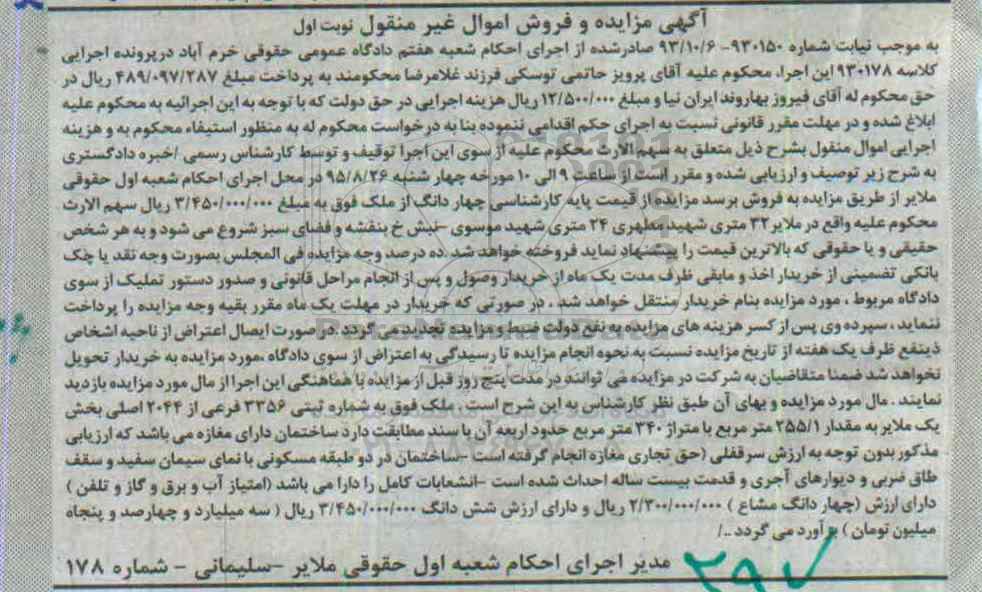 آگهی مزایده و فروش اموال غیر منقول نوبت اول
به موجب نیابت شماره ۹۳۰۱۵۰- ۹۳/۱۰/۶ صادرشده از اجرای احکام شعبه هفتم دادگاه عمومی حقوقی خرم آباد درپرونده اجرایی
کلاسه ۹۳۰۱۷۸ این اجرا، محکوم علیه آقای پرویز حاتمی توسکی فرزند غلامرضا محکومند به پرداخت مبلغ ۴۸۹/۰۹۷/۲۸۷ ریال در
حق محکوم له آقای فیروز بهاروند ایران نیا و مبلغ ۱۲/۵۰۰/۰۰۰ ریال هزینه اجرایی در حق دولت که با توجه به این اجرائیه به محکوم علیه
ابلاغ شده و در مهلت مقرر قانونی نسبت به اجرای حکم اقدامی ننموده بنا به درخواست محکوم له به منظور استیفاء محکوم به و هزینه
اجرایی اموال منقول بشرح ذیل متعلق به سهم الارث محکوم علیه از سوی این اجرا توقیف و توسط کارشناس رسمی /خبره دادگستری
به شرح زیر توصیف و ارزیابی شده و مقرر است از ساعت ۹ الی ۱۰ مورخه چهار شنبه ۹۵/۸/۲۶ در محل اجرای احکام شعبه اول حقوقی
ملایر از طریق مزایده به فروش برسد مزایده از قیمت پایه کارشناسی چهار دانگ از ملک فوق به مبلغ ۳/۴۵۰/۰۰۰/۰۰۰ ریال سهم الارث
محکوم علیه واقع در ملایر ۳۲ متری شهید مطهری ۲۴ متری شهید موسوی –نبش خ بنفشه و فضای سبز شروع می شود و به هر شخص
حقیقی و یا حقوقی که بالاترین قیمت را پیشنهاد نماید فروخته خواهد شد .ده درصد وجه مزایده فی المجلس بصورت وجه نقد یا چک
بانکی تضمینی از خریدار اخذ و مابقی ظرف مدت یک ماه از خریدار وصول و پس از انجام مراحل قانونی و صدور دستور تملیک از سوی
دادگاه مربوط ، مورد مزایده بنام خریدار منتقل خواهد شد . در صورتی که خریدار در مهلت یک ماه مقرر بقیه وجه مزایده را پرداخت
ننماید ، سپرده وی پس از کسر هزینه های مزایده به نفع دولت ضبط و مزایده تجدید می گردد .در صورت ایصال اعتراض از ناحیه اشخاص
ذینفع ظرف یک هفته از تاریخ مزایده نسبت به نحوه انجام مزایده تا رسیدگی به اعتراض از سوی دادگاه ،مورد مزایده به خریدار تحویل
نخواهد شد ضمنا متقاضیان به شرکت در مزایده می توانند در مدت پنج روز قبل از مزایده با هماهنگی این اجرا از مال مورد مزایده بازدید
نمایند . مال مورد مزایده و بهای آن طبق نظر کارشناس به این شرح است . ملک فوق به شماره ثبتی ۳۳۵۶ فرعی از ۲۰۴۴ اصلی بخش
یک ملایر به مقدار ۲۵۵/۱ متر مربع با متراژ ۳۴۰ متر مربع حدود اربعه آن با سند مطابقت دارد ساختمان دارای مغازه می باشد که ارزیابی
مذکور بدون توجه به ارزش سرقفلی (حق تجاری مغازه انجام گرفته است –ساختمان در دو طبقه مسکونی با نمای سیمان سفید و سقف
طاق ضربی و دیوارهای آجری و قدمت بیست ساله احداث شده است –انشعابات کامل را دارا می باشد (امتیاز آب و برق و گاز و تلفن )
دارای ارزش (چهار دانگ مشاع ) ۲/۳۰۰/۰۰۰/۰۰۰ ریال و دارای ارزش شش دانگ ۳/۴۵۰/۰۰۰/۰۰۰ ریال ( سه میلیارد و چهارصد و پنجاه
میلیون تومان ) برآورد می گردد ../
مدیر اجرای احکام شعبه اول حقوقی ملایر –سلیمانی – شماره ۱۷۸
۲۹۷